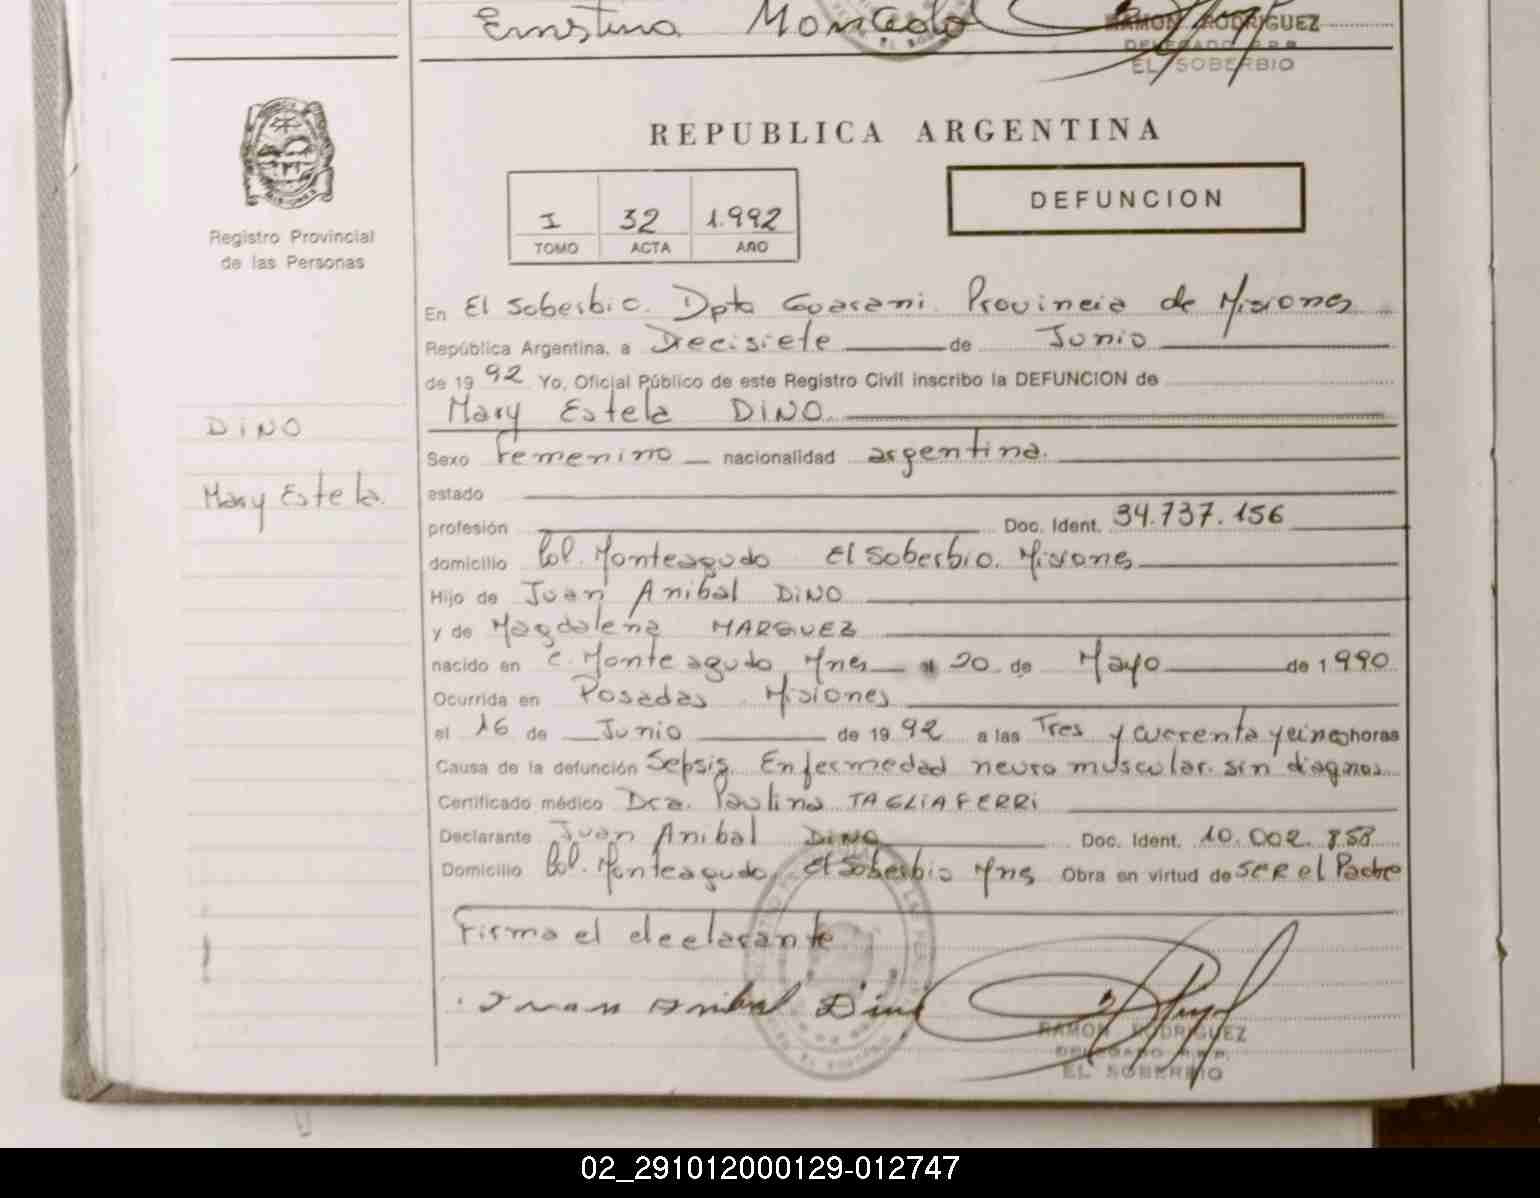 Ernstina Moncedo
RAMON RODRIGUEZ
DELEGADO R.P.P.
EL SOBERBIO
Registro Provincial
de las Personas
REPUBLICA ARGENTINA
I 32 1.992
TOMO ACTA AÑO
DEFUNCION
En El Soberbio. Dpto Guarani. Provincia de Misiones
República Argentina, a Diecisiete de Junio
de 1992 Yo, Oficial Público de este Registro Civil inscribo la DEFUNCION de
Mary Estela DINO
DINO
Mary Estela.
Sexo Femenino nacionalidad argentina.
estado
profesión Doc. Ident. 34.737.156
domicilio Col. Monteagudo El Soberbio. Misiones
Hijo de Juan Anibal DINO
y de Magdalena MARQUEZ
nacido en C. Monteagudo Mnes el 20 de Mayo de 1990
Ocurrida en Posadas Misiones
el 16 de Junio de 1992 a las Tres y cuarenta y cinco horas
Causa de la defunción Sepsis. Enfermedad neuro muscular. sin diagnos.
Certificado médico Dra. Paulina TAGLIAFERRI
Declarante Juan Anibal DINO Doc. Ident. 10.002.858
Domicilio Col. Monteagudo, El Soberbio Mns Obra en virtud de SER el Padre
Firma el declarante
Juan Anibal Dino
RAMON RODRIGUEZ
DELEGADO R.P.P.
EL SOBERBIO
02_291012000129-012747